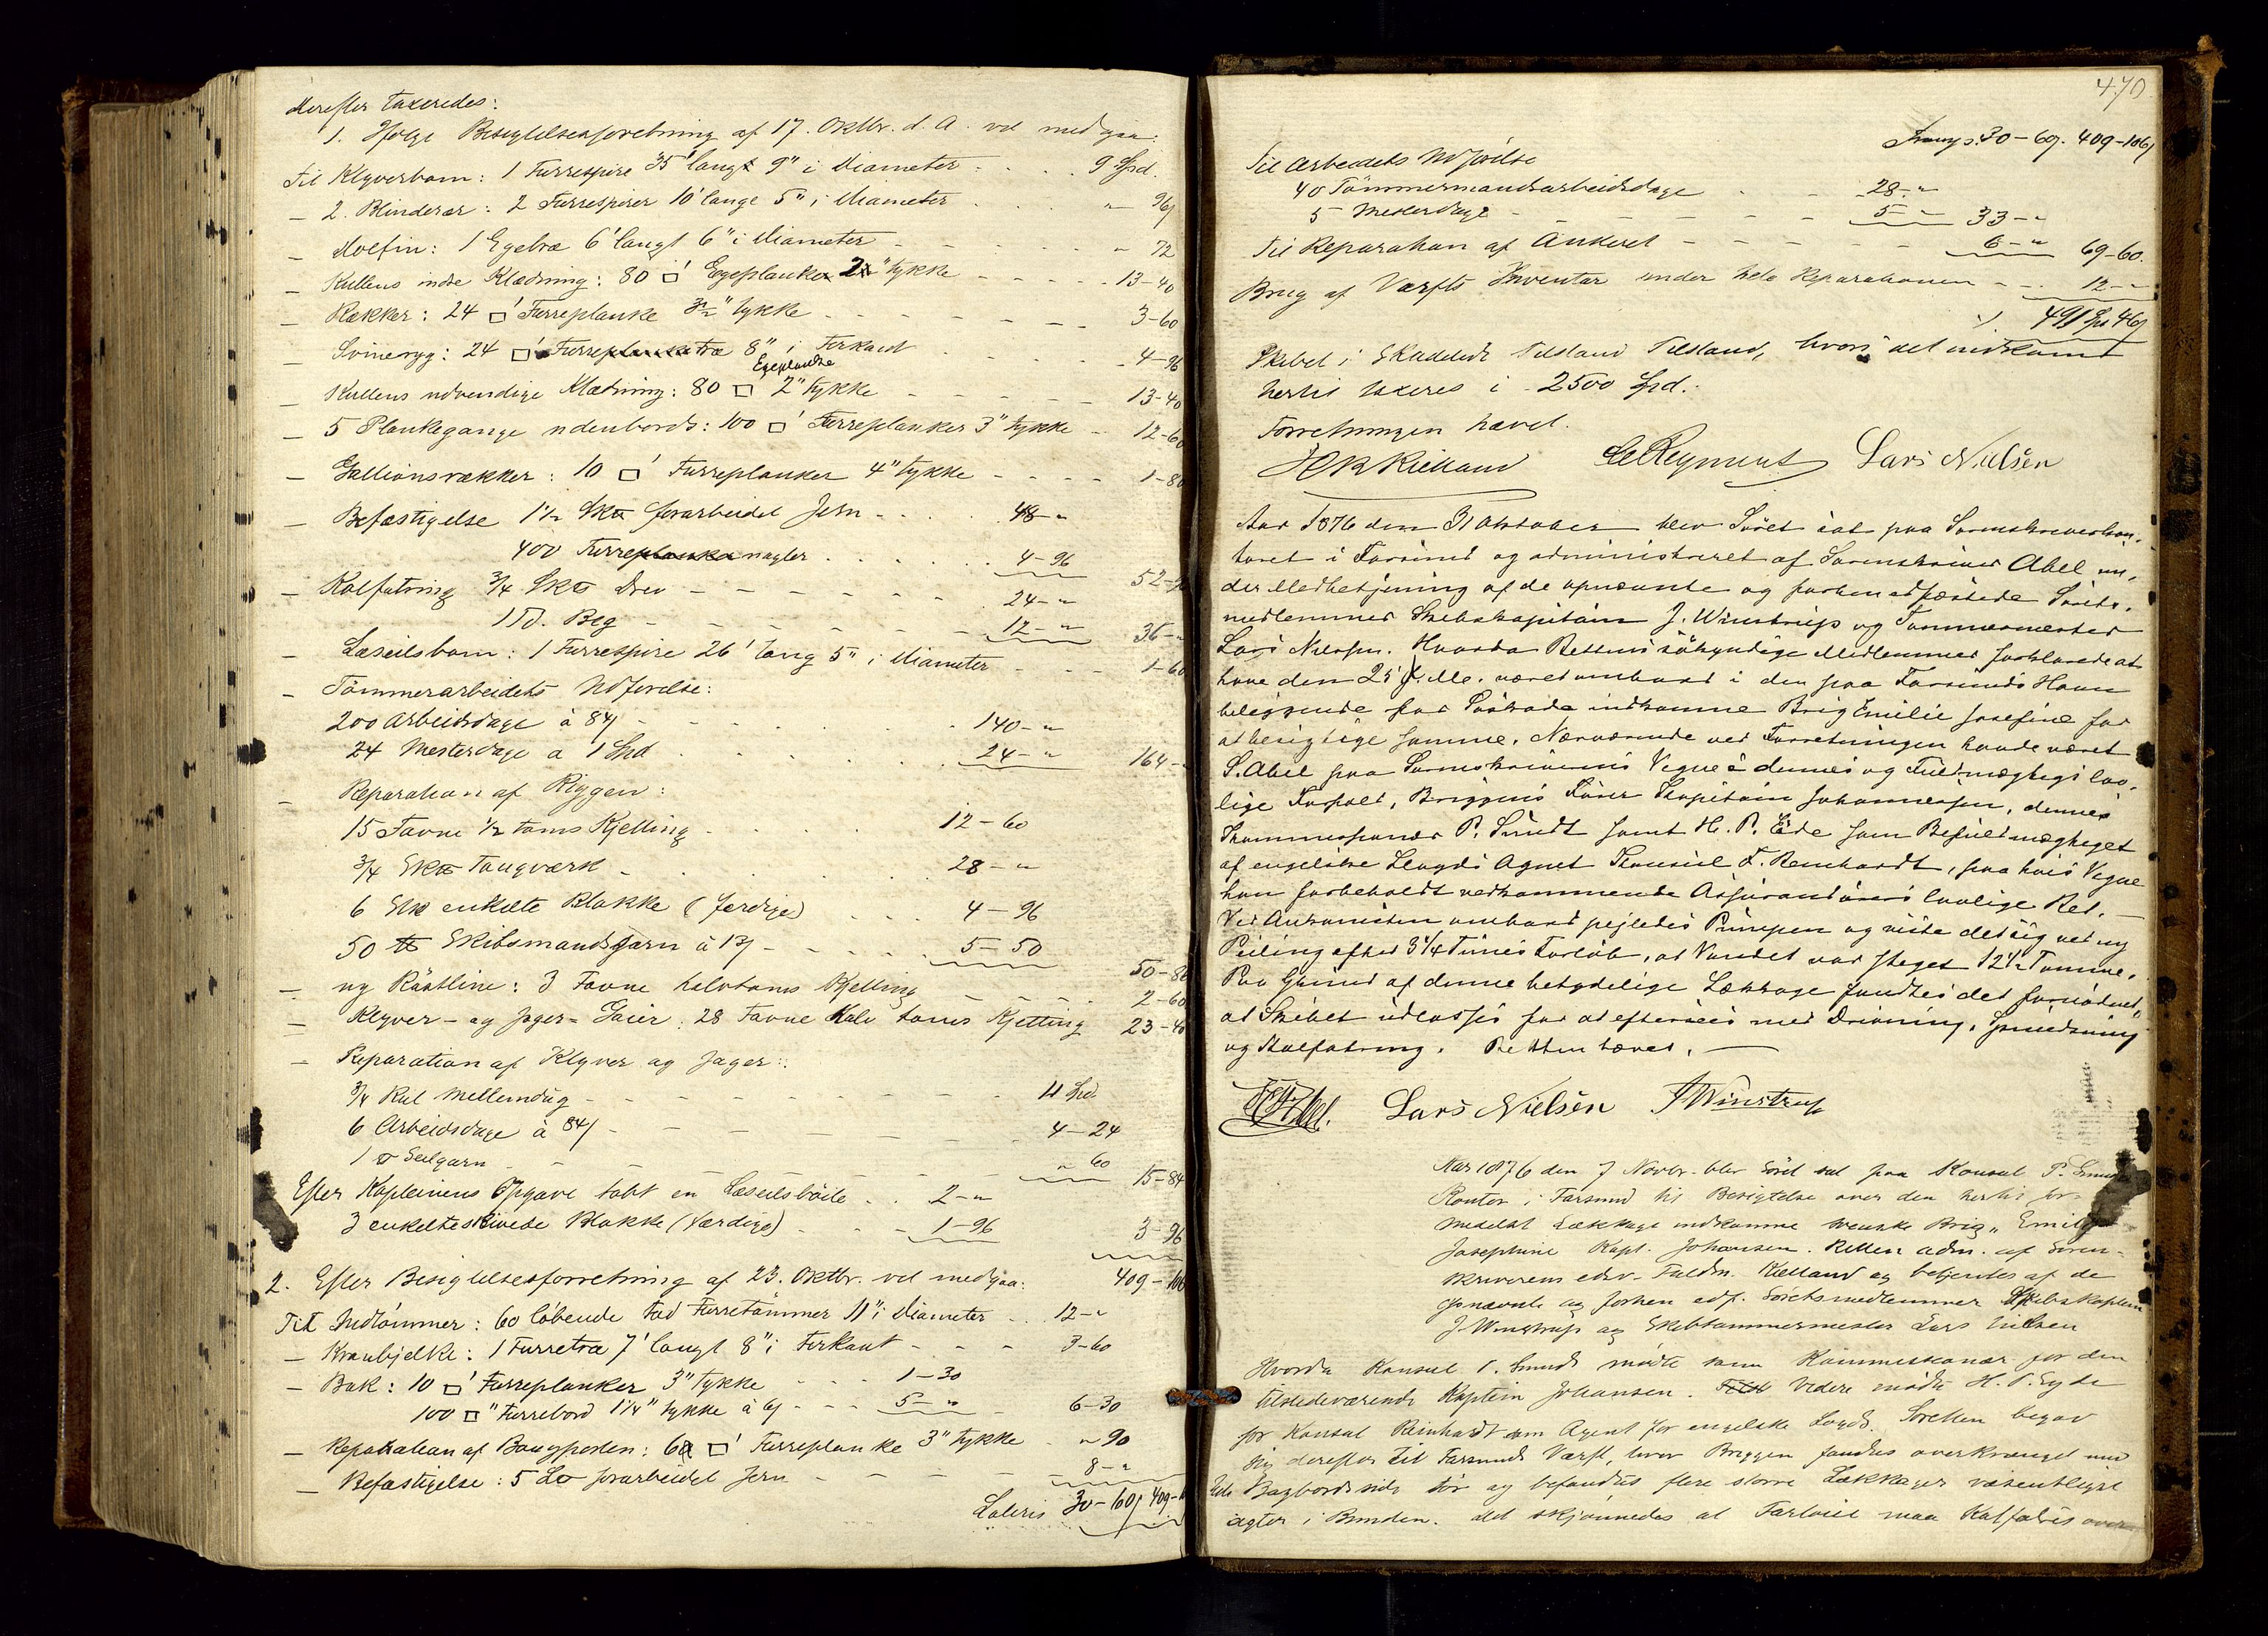 Derefter taxeredes:
1. Ifølge Besigtelsesforretning af 17. Oktbr. d. A. vil medgaa:
Til Klyverbom: 1 Furrespire 35' langt 9" i Diameter . . . 9 Spd.
- 2. Blinderaer: 2 Furrespirer 10' lange 5" i Diameter . . . " 96
- Dolfin: 1 Egetræ 6' langt 6" i Diameter - - - " 72
- Kullens indre Klædning: 80 □' Egeplanker 2" tykke - - - 13-40
- Rækker: 24 □' Furreplanke tykke - - - 3-60
- Svineryg: 24 □' Furreplanketræ 8" i Firkant - - - 4-96
Egeplanke
- Kullens udvendige Klædning: 80 □ 2" tykke - - - 13-40
- 5 Plankegange udenbords: 100 □' Furreplanker 3" tykke - 12-60
- Gallionsrækker: 10 □' Furreplanker 4" tykke - - - 1-80
- Befæstigelse 1½ Sk℔ forarbeidet Jern - . . . 48- "
400 Furreplanke nagler . . . 4-96
- Kalfatring ¾ Sk℔ Drev - - - 24- " 52-96
1 Td. Beg - - - 12- " 36- "
- Læseilsbom: 1 Furrespire 26' lang 5" i Diameter - - 1-60
- Tømmerarbeidets Udførelse:
200 Arbeidsdage à 84 - - . 140- "
24 Mesterdage a 1 Spd . . . 24- " 164- "
- Reparation af Riggen:
15 Favne ½ toms Kjetting . . . 12-60
¾ Sk℔ Tougværk - . . . 28- "
6 Stk enkelte Blokke (færdige) . . . 4-96
50 ℔ Skibsmandsgarn à 13 - - . 5-50
50-86
- ny Røstline: 3 Favne halvtoms Kjetting - - - 2-60
- Klyver- og Jager- Gaier: 28 Favne Halv toms Kjetting 23-40
- Reparation af Klyver og Jager:
¾ Rul Mellemdug - - - 11 Spd.
6 Arbeidsdage à 84 - - - 4-24
1 ℔ Seilgarn - - - " 60
15-84
Efter Kapteinens Opgave tabt en Læseilsbøile . . 2- "
3 enkelteskivede Blokke (Færdige) - - - 1-96 3-96
2. Efter Besigtelsesforretning af 23. Oktbr. vil medgaa: 409-106
Til Indtømmer: 60 løbende Fod Furretømmer 11" i Diameter . . 12- "
- Kranbjelke: 1 Furretræ 7' langt 8" i Firkant - - - 3-60
- Bak: 10 □' Furreplanker 3" tykke - - - 1-30
100 □" Furrebord 1¼" tykke à 6 - - - 5- " 6-30
- Reparation af Bougporten: 6 □' Furreplanke 3" tykke " 90
- Befæstigelse: 5 L℔ forarbeidet Jern - - - 8- "
Lateris 30-60 409-106
470
Transp. 30-60. 409-106
Til Arbeidets Udførelse
40 Tømmermandsarbeidsdage - - - 28- "
5 Mesterdage - - - 5- " 33- "
Til Reparation af Ankeret - - - 6- " 69-60.
Brug af Værfts Inventar under hele Reparationen - - - 12- "
491 Spd 46
Skibet i skadelidt Tilstand Tilstand, hvori det indkom
hertil taxeres i 2500 Spd.
Forretningen hævet.
Kielland Reymert Lars Nielsen
Aar 1876 den 31 Oktober blev Søret sat paa Sorenskriverkon-
toret i Farsund og administreret af Sorenskriver Abel un-
der Medbetjening af de opnævnte og forhen edfæstede Sørets-
medlemmer Skibskapitain J. Winstrup og Tømmermester
Lars Nielsen. Hvorda Rettens søkyndige Medlemmer forklarede at
have den 25 d. M. været ombord i den paa Farsunds Havn
beliggende for Søskade indkomne Brig Emilie Josefine for
at besigtige samme. Nærværende ved Forretningen havde været
S. Abel paa Sorenskriverens Vegne i dennes og Fuldmægtigs lov-
lige Forfald, Briggens Fører Kapitain Johannessen, dennes
Kommissionær P. Sundt samt H. P. Eide som Befuldmægtiget
af engelske Lloyds Agent Konsul F. Reinhardt, paa hvis Vegne
han forbeholdt vedkommende Assurandører lovlige Ret. -
Ved Ankomsten ombord pejledes Pumpen og viste det sig ved ny
Peiling efter 3¼ Times Forløb, at Vandet var steget 12½ Tomme.
Paa Grund af denne betydelige Lækkage fandtes det fornødent,
at Skibet udlosses for at eftersees med Drivning, Spunsning
og Kalfatring. Retten hævet. -
Abel. Lars Nielsen J Winstrup
Aar 1876 den 7 Novbr. blev Søret sat paa Konsul P. Sundts
Kontor i Farsund til Besigtelse over den hertil for-
medelst Lækkage indkomne svenske Brig "Emilie
Josephine Kapt. Johansen. Retten adm. af Soren-
skriverens edsv. Fuldm. Kielland og betjentes af de
opnævnte og forhen edf. Søretsmedlemmer Skibskaptein
J. Winstrup og Skibstømmermester Lars Nielsen
Hvorda Konsul P. Sundt mødte som Kommissionær for den
tilstedeværende Kaptein Johansen. Videre mødte H. P. Eyde
for Konsul Reinhardt som Agent for engelske Loyds. Søretten begav
sig derefter til Farsunds Værft, hvor Briggen fandtes overkrænget med
hele Bagbords side tør og befandtes flere større Lækkager væsentligst
agter i Bunden. Det skjønnedes at Fartøiet maa Kalfatres over